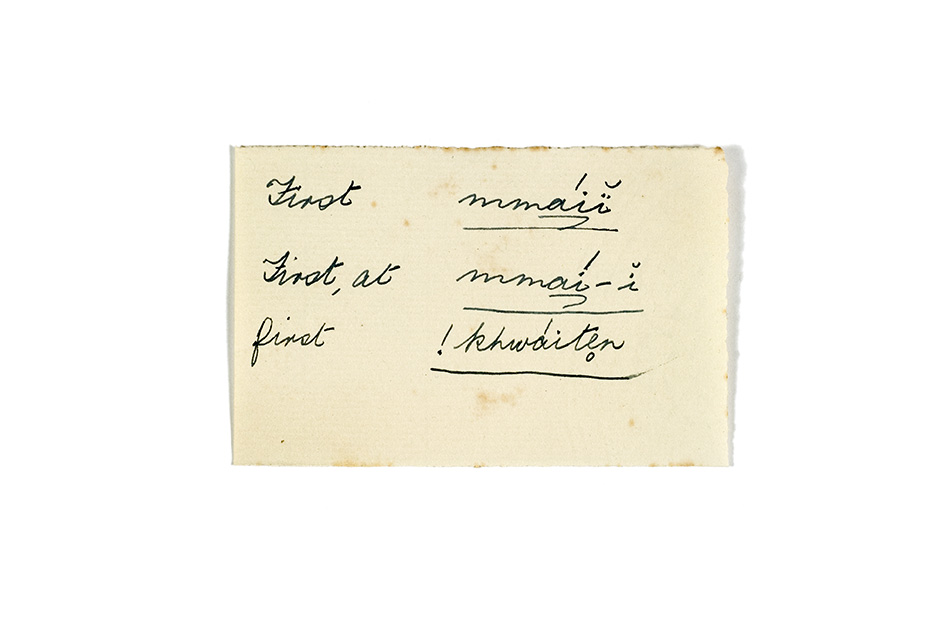 First mmáiĭ
First, at mmaí-ĭ
first !khwáitẹn